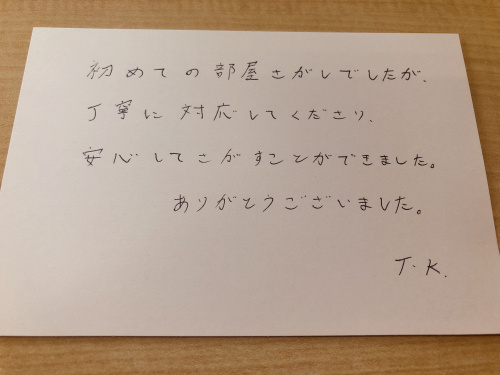 初めての部屋さがしでしたが、
丁寧に対応してくださり、
安心してさがすことができました。
ありがとうございました。
T.K.